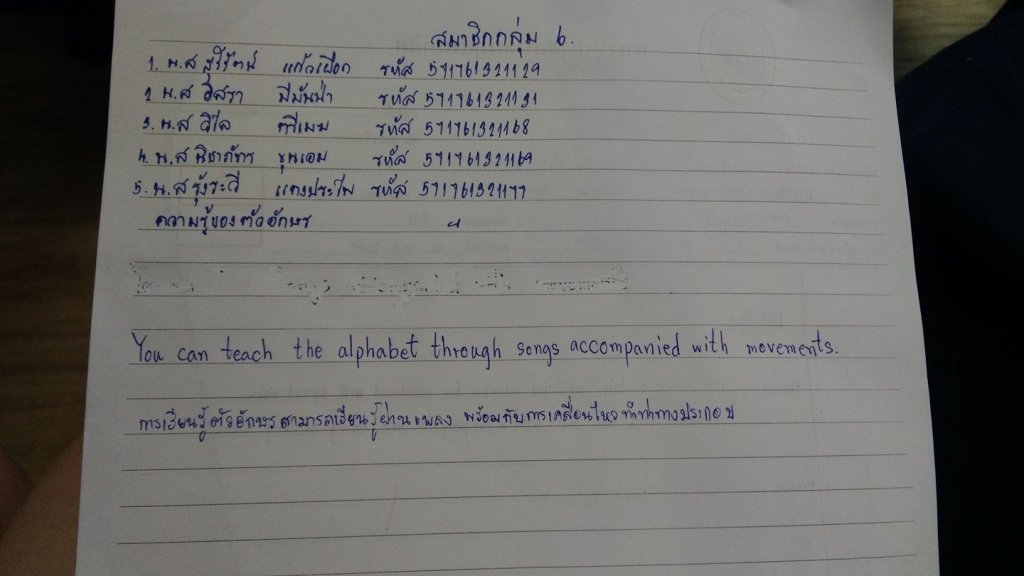 สมาชิกกลุ่ม 6.
1. น.ส สุรีรัตน์ แก้วเผือก รหัส 571761321129
2 น.ส อิสรา รหัส 571761321131
3. น.ส วิไล รหัส 571761321168
4. น.ส นิชาภัทร ขุนเอม รหัส 571761321169
5. น.ส รุ้งระวี แดงประไพ รหัส 571761321177
ความรู้ของตัวอักษร
You can teach the alphabet through songs accompanied with movements.
การเรียนรู้ตัวอักษรสามารถเรียนรู้ผ่านเพลง พร้อมกับการเคลื่อนไหวทำท่าทางประกอบ